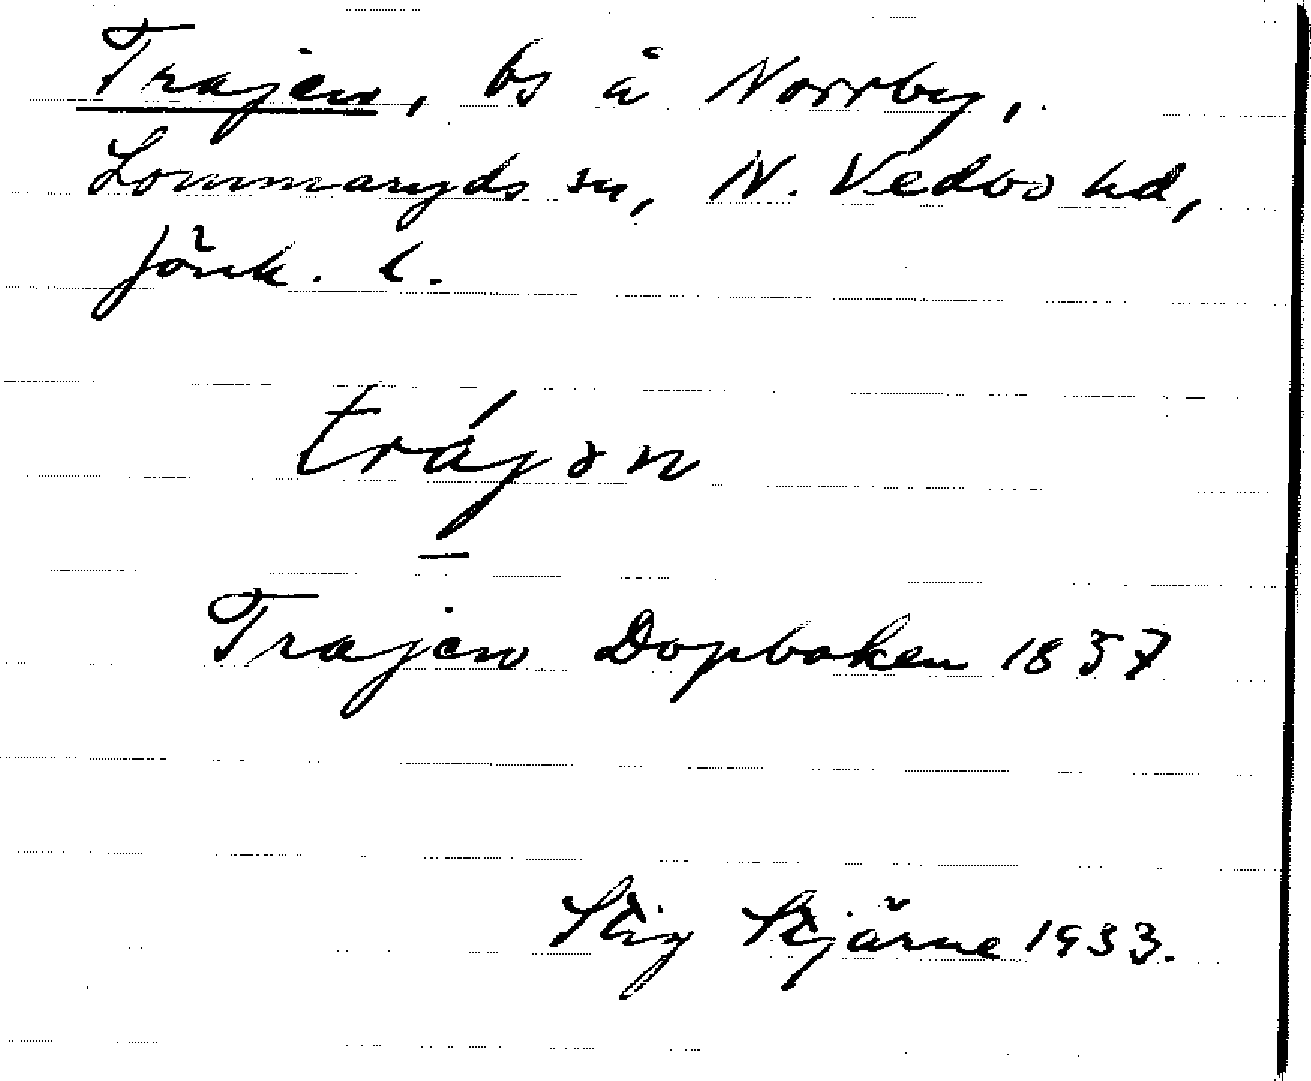 Trajen, bs å Norrby,
Lommaryds sn, N. Vedbo hd,
Jönk. l.
trájən
Trajen Dopboken 1857
Stig Stjärne 1933.